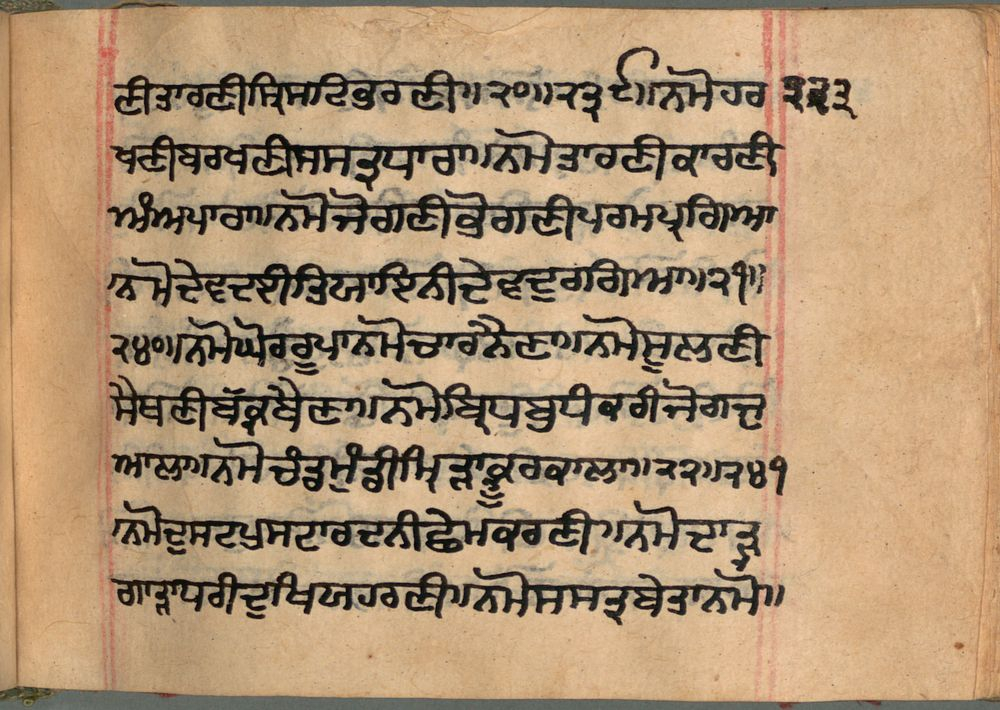 ਣੀਤਾਰਣੀਸ੍ਰਿਸਟਿਭੁਰਣੀ॥੨੦॥੨੩੯॥ਨਮੋਹਰ ੨੨੩
ਖਣੀਬਰਖਣੀਸਸਤ੍ਰਧਾਰਾ॥ਨਮੋਤਾਰਣੀਕਾਰਣੀ
ਅੰਅਪਾਰਾ॥ਨਮੋਜੋਗਣੀਭੋਗਣੀਪਰਮਪ੍ਰਗਿਆ
ਨਮੋਦੇਵਦਈਤ੍ਰਿਯਾਇਨੀਦੇਵਦੁਰਗਿਆ॥੨੧॥
੨੪੦॥ਨਮੋਘੋਰਰੂਪਾਨਮੋਚਾਰਨੈਣਾ॥ਨਮੋਸੂਲਣੀ
ਸੈਥਣੀਬੱਕ੍ਰਬੈਣਾ॥ਨਮੋਬ੍ਰਿਧਬੁਧੀਕਰੀਜੋਗਜ੍ਵ
ਆਲਾ॥ਨਮੋਚੰਡਮੁੰਡੀਮ੍ਰਿੜਾਕ੍ਰੂਰਕਾਲਾ॥੨੨॥੨੪੧
ਨਮੋਦੁਸਟਪੁਸਟਾਰਦਨੀਛੇਮਕਰਣੀ॥ਨਮੋਦਾੜ੍ਹ
ਗਾੜਾਧਰੀਦੁਖਿਯਹਰਣੀ॥ਨਮੋਸਸਤ੍ਰਬੇਤਾਨਮੋ॥